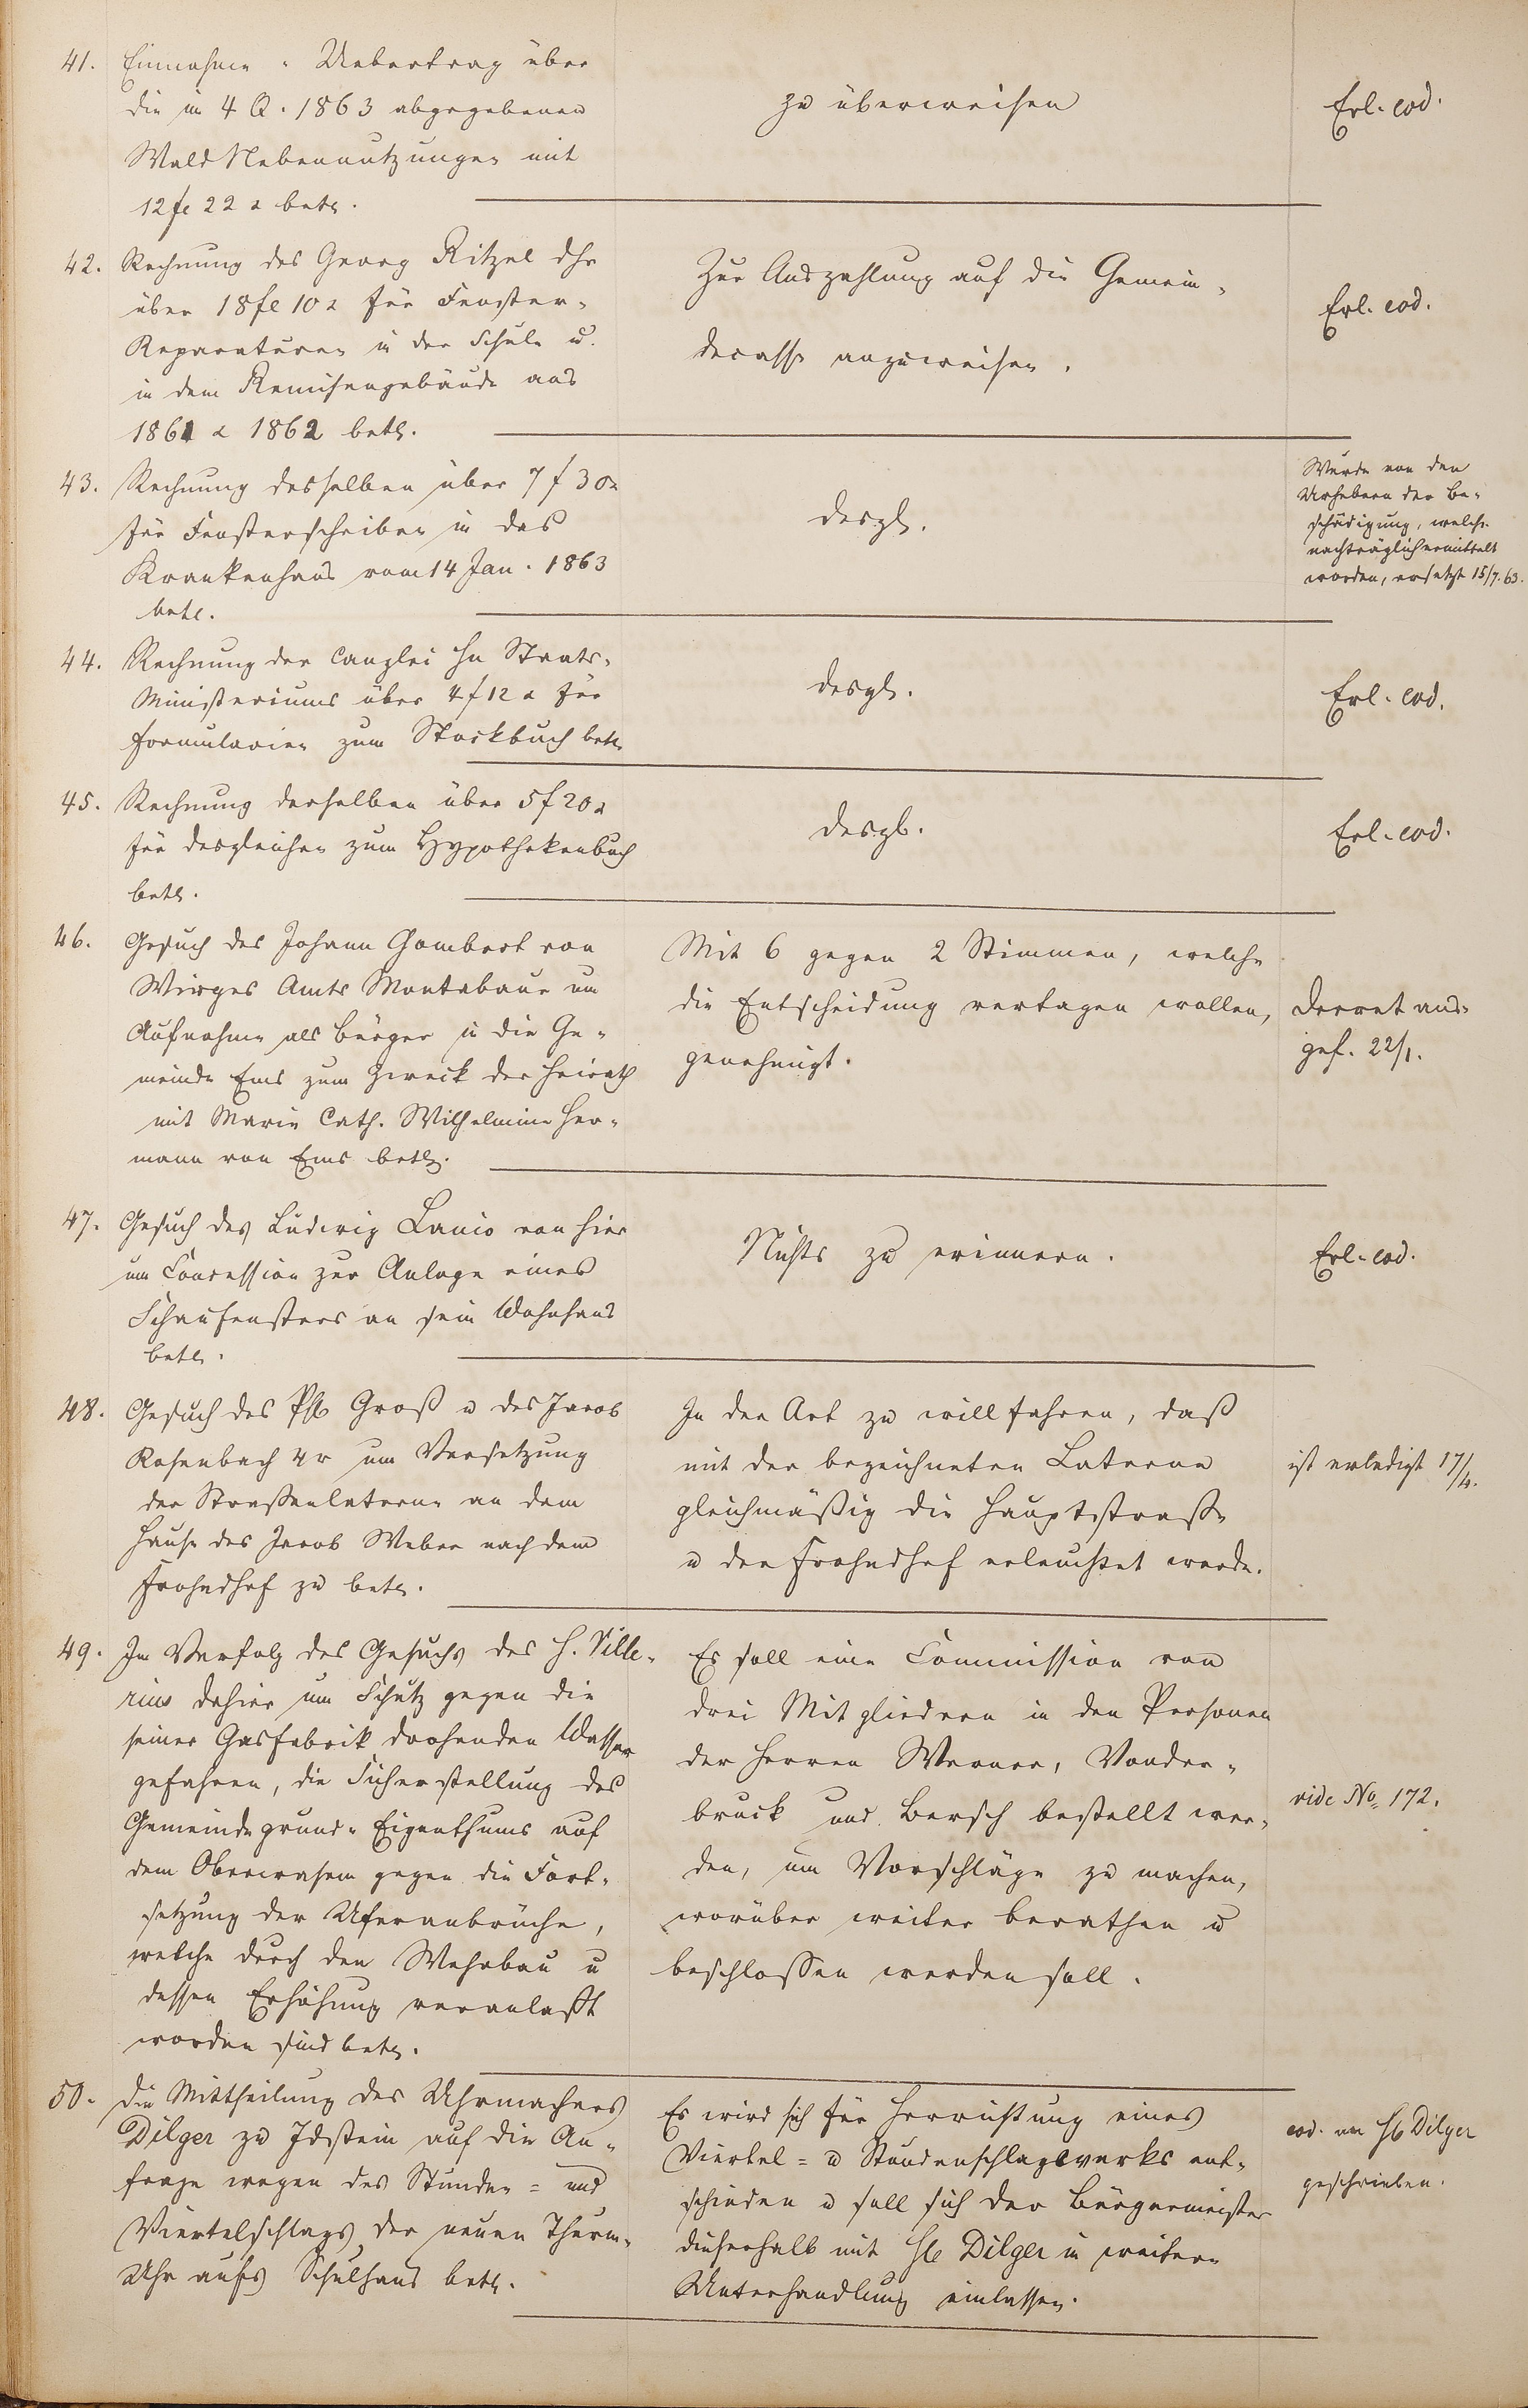 41. Einnahme-Uebertrag über
die in 4 Q. 1863 abgegebenen
Wald Nebennutzungen mit
12 fl 22 x betr.
zu überweisen
Erl. eod.
42. Rechnung des Georg Ritzel dhr
über 18 fl 10 x für Fenster-
Reparaturen in der Schule u.
in dem Remisengebäude aus
1861 & 1862 betr.
Zur Auszahlung auf die Gemein-
decasse anzuweisen.
Erl. eod.
43. Rechnung desselben über 7 f 30 x
für Fensterscheiben in das
Krankenhaus vom 14 Jan. 1863
betr.
desgl.
Wurde von den
Urhebern der Be-
schädigung, welche
nachträglich ermittelt
worden, ersetzt 15/7. 63.
44. Rechnung der Canzlei Hn Staats-
Ministeriums über 4 f 12 x für
Formularien zum Stockbuch betr.
desgl.
Erl. eod.
45. Rechnung derselben über 5 f 20 x
für desgleichen zum Hypothekenbuch
betr.
desgl.
Erl. eod.
46. Gesuch des Johann Gombert von
Wirges Amts Montabaur um
Aufnahme als Bürger in die Ge-
meinde Ems zum Zweck der Heirath
mit Marie Cath. Wilhelmine Her-
mann von Ems betr.
Mit 6 gegen 2 Stimmen, welche
die Entscheidung vertagen wollen,
genehmigt.
Decret aus-
gef. 22/1.
47. Gesuch des Ludwig Lanio von hier
um Concession zur Anlage eines
Schaufensters an sein Wohnhaus
betr.
Nichts zu erinnern.
Erl. eod.
48. Gesuch des Phil Groß u des Jacob
Rosenbach 4r um Versetzung
der Straßenlaterne an dem
Hause des Jacob Weber nach dem
Frohndhof zu betr.
In der Art zu willfahren, daß
mit der bezeichneten Laterne
gleichmäßig die Hauptstraße
u der Frohndhof erleuchtet werde.
ist erledigt 17/4.
49. In Verfolg des Gesuchs des H. Ville-
rius dahier um Schutz gegen die
seiner Gasfabrik drohenden Wasser
gefahren, die Sicherstellung des
Gemeindegrund-Eigenthums auf
dem Oberwasem gegen die Fort-
setzung der Uferanbrüche,
welche durch den Wehrbau u
dessen Erhöhung veranlaßt
worden sind betr.
Es soll eine Commission von
drei Mitgliedern in den Personen
der Herren Werner, Vonder-
bruck und Bersch bestellt wer-
den, um Vorschläge zu machen,
worüber weiter berathen u
beschlossen werden soll.
vide No 172.
50. Die Mittheilung des Uhrmachers
Dilger zu Idstein auf die An-
frage wegen des Stunden- und
Viertelschlags der neuen Thurm-
Uhr aufs Schulhaus betr.
Es wird sich für Herrichtung eines
Viertel- u Stundenschlagewerks ent-
schieden u soll sich der Bürgermeister
dieserhalb mit Hl Dilger in weitere
Unterhandlung einlassen.
eod. an Hl Dilger
geschrieben.